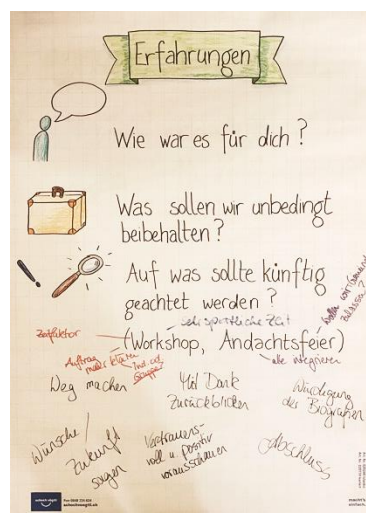 Erfahrungen
Wie war es für dich?
Was sollen wir unbedingt
beibehalten?
Auf was sollte künftig
geachtet werden?
sehr sportliche Zeit
Zeitfaktor
(Workshop, Andachtsfeier)
alle integrieren
Auftrag
Weg machen
Mit Dank
Zurückblicken
Würdigung
der Biografien
Wünsche/
Zukunft
sagen
Vertrauens-
voll u. positiv
vorausschauen
Abschluss